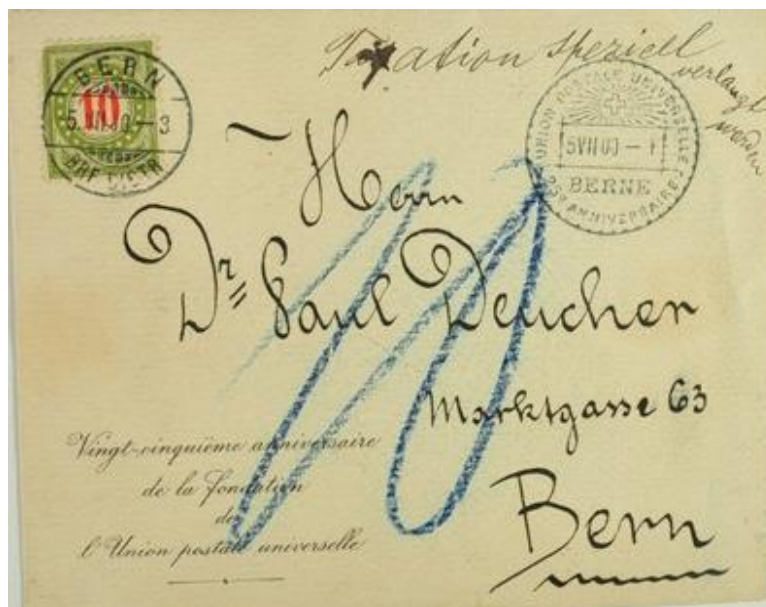 Taxation speziell
verlangt
werden
BERN
10
5.VII.00-3
BRF. DISTR.
UNION POSTALE UNIVERSELLE
5 VII 00-1
BERNE
25E ANNIVERSAIRE
Herrn
Dr. Paul Deucher
Marktgasse 63
Bern
10
Vingt-cinquième anniversaire
de la fondation
de
l'Union postale universelle